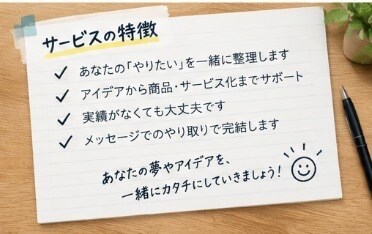 サービスの特徴
✓ あなたの「やりたい」を一緒に整理します
✓ アイデアから商品・サービス化までサポート
✓ 実績がなくても大丈夫です
✓ メッセージでのやり取りで完結します
あなたの夢やアイデアを、
一緒にカタチにしていきましょう!